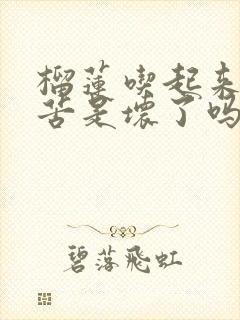 榴莲喫起来
苦是壞了吗
碧落飛虹